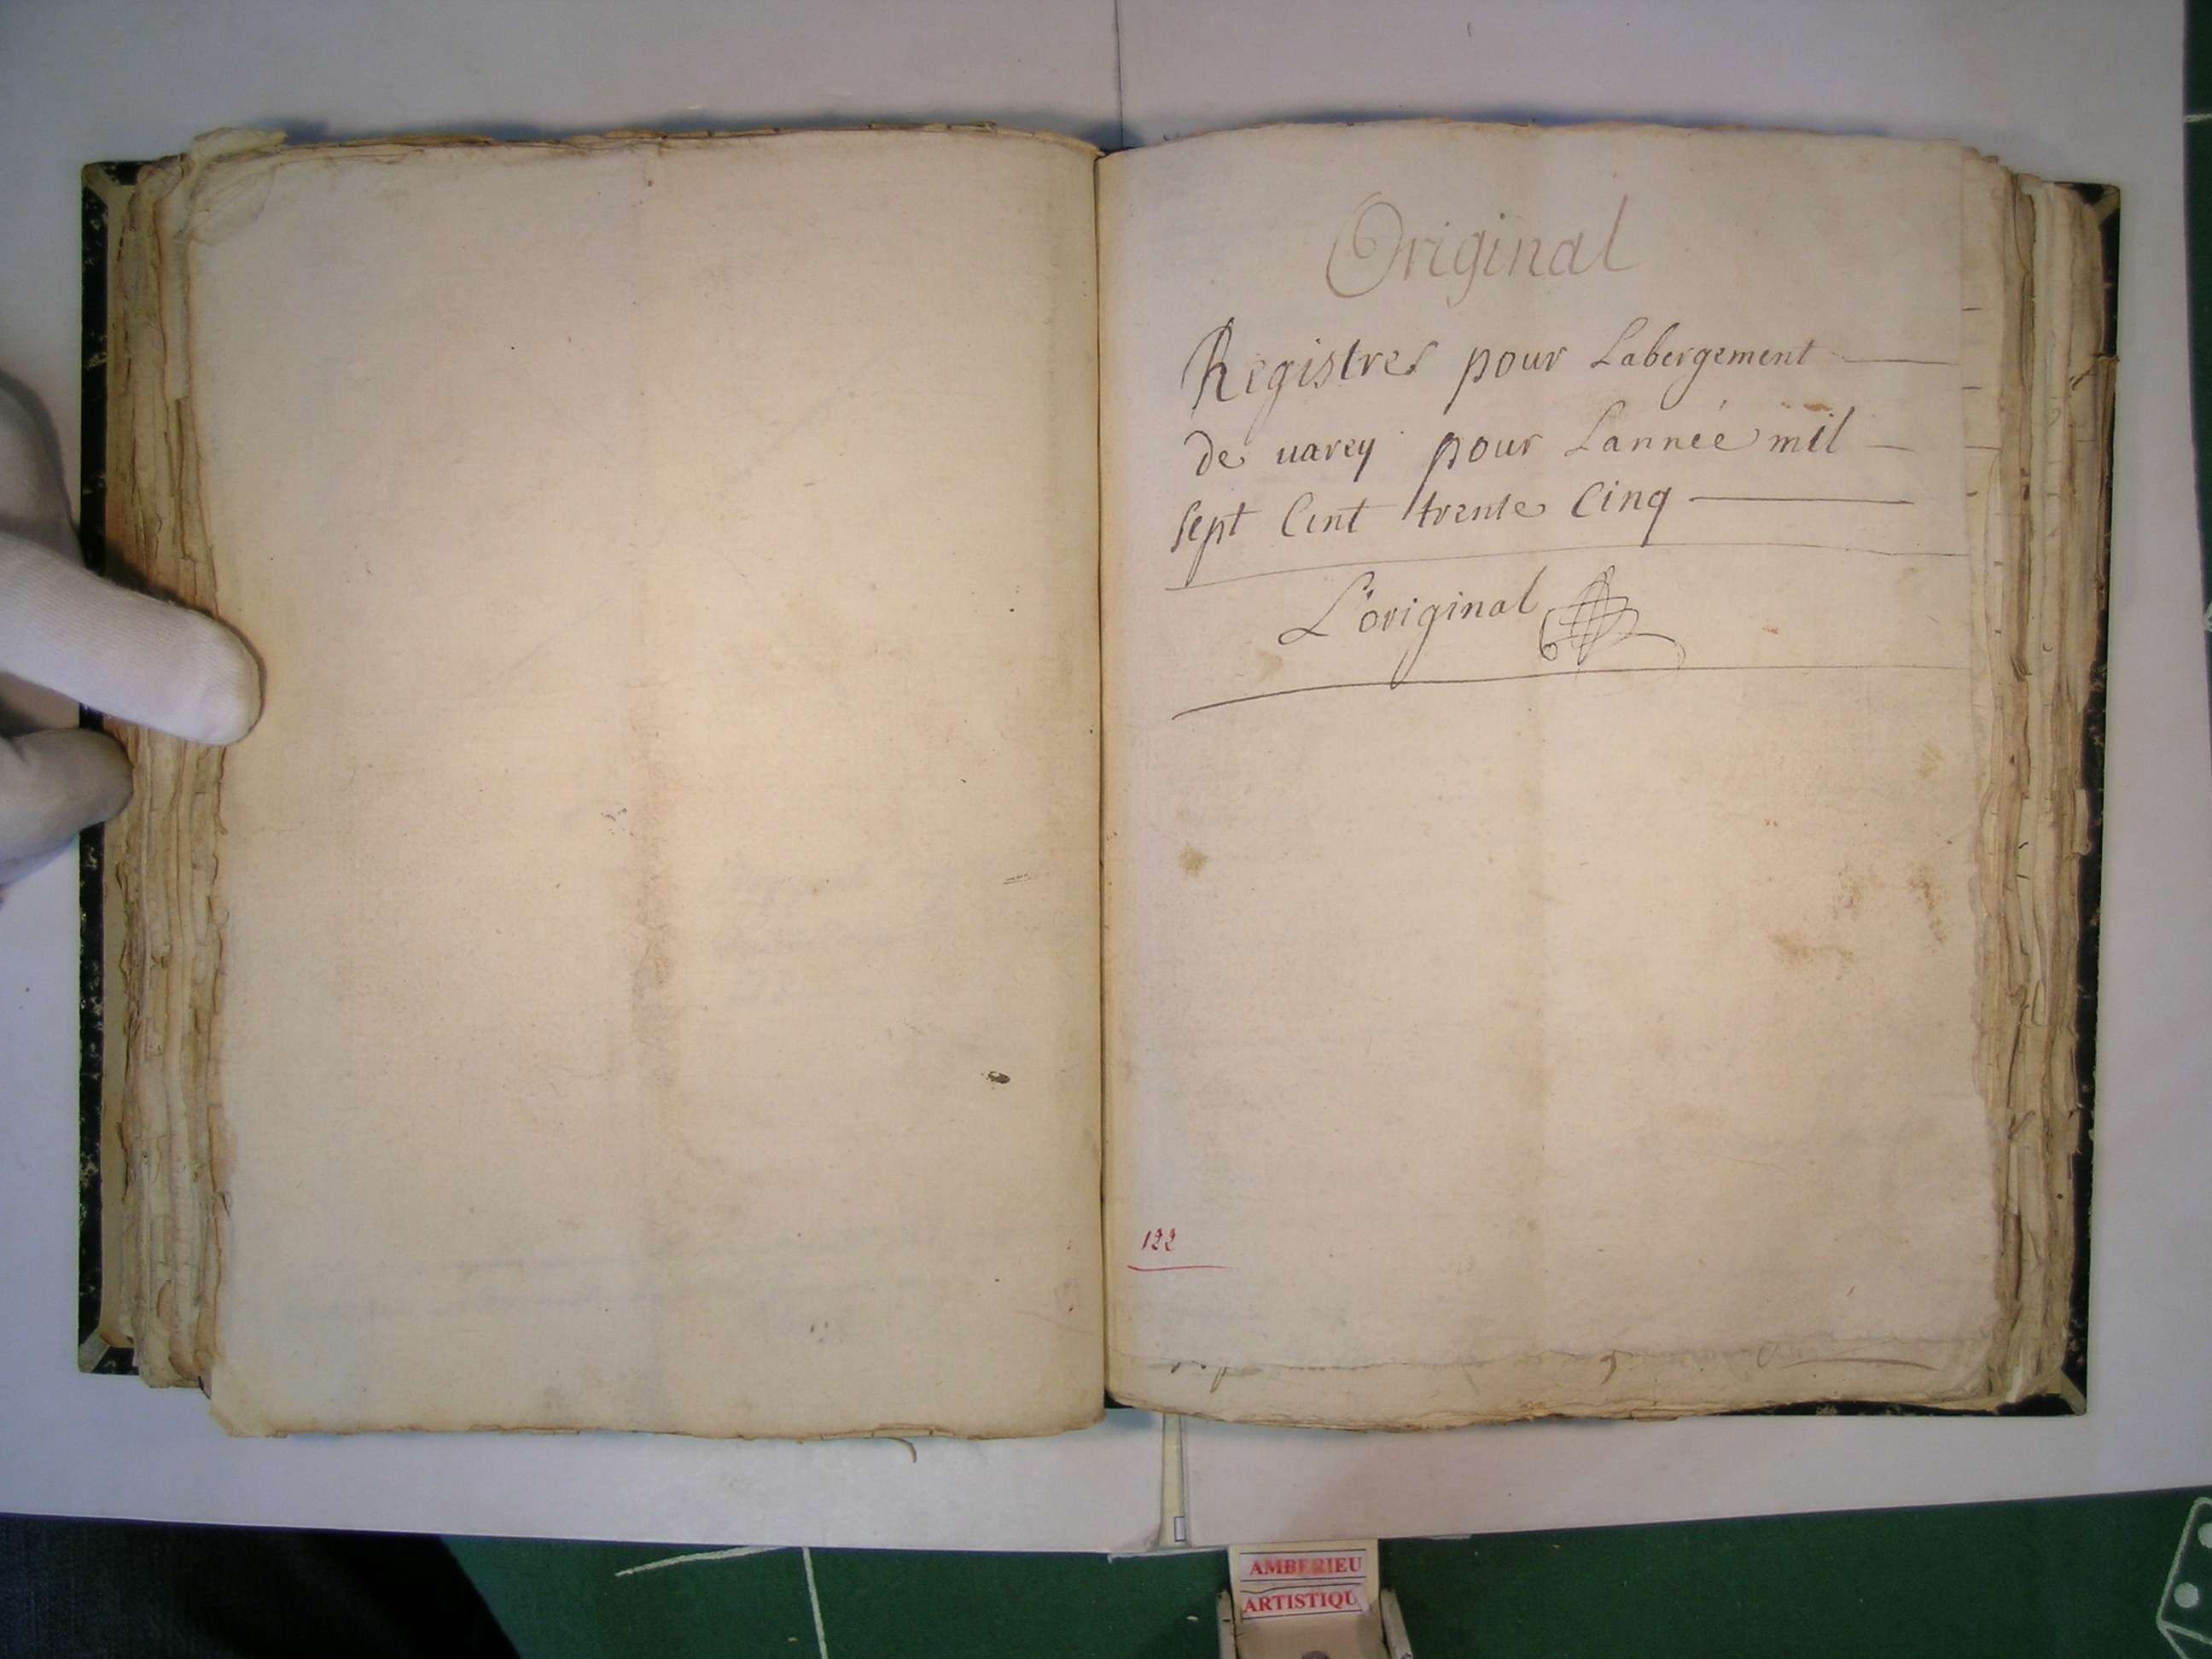 Original
Registres pour Labergement
de varey pour Lannée mil
sept Cent trente Cinq
L'original
122
AMBERIEU
ARTISTIQU